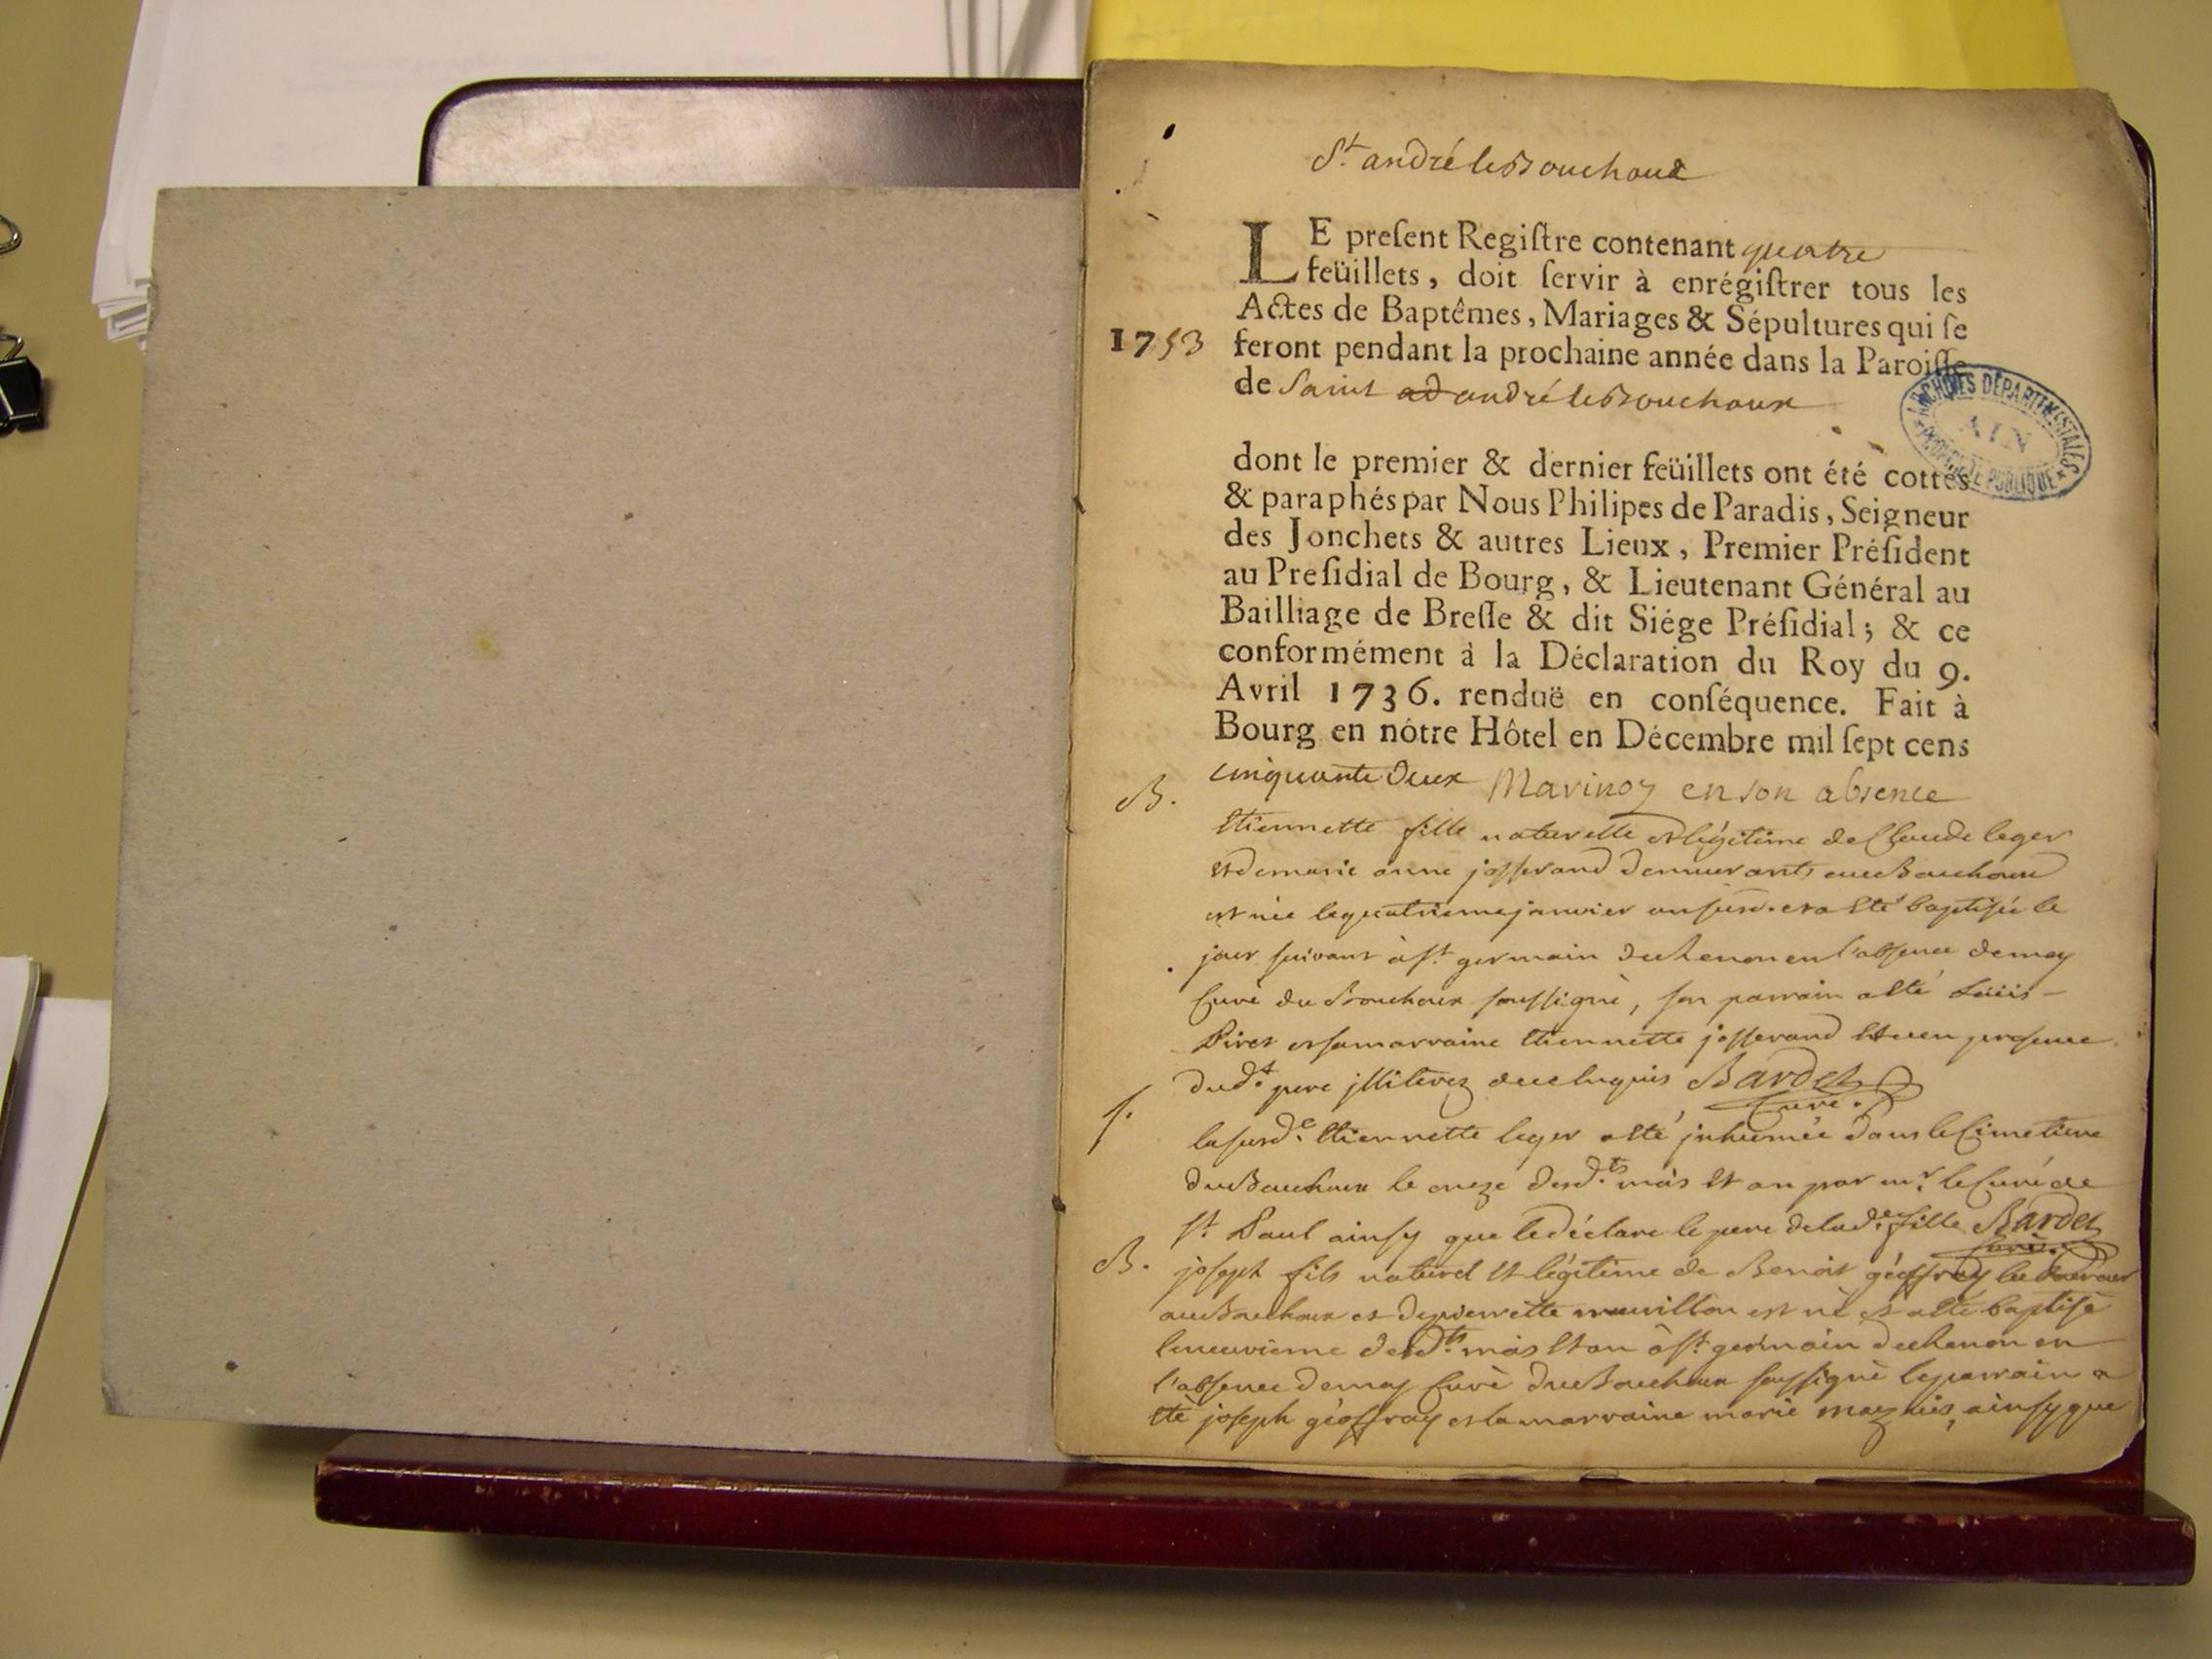 St. andré le Bouchoux
LE preſent Regiſtre contenant quatre
feüillets, doit ſervir à enrégiſtrer tous les
Actes de Baptêmes, Mariages & Sépultures qui ſe
1753 feront pendant la prochaine année dans la Paroiſſe
de Saint ad andré le Bouchoux
ARCHIVES DÉPARTEMENTALES
AIN
PROPRIÉTÉ PUBLIQUE
dont le premier & dernier feüillets ont été cottés
& paraphés par Nous Philipes de Paradis, Seigneur
des Jonchets & autres Lieux, Premier Préſident
au Preſidial de Bourg, & Lieutenant Général au
Bailliage de Breſſe & dit Siége Préſidial; & ce
conformément à la Déclaration du Roy du 9.
Avril 1736. renduë en conſéquence. Fait à
Bourg en nôtre Hôtel en Décembre mil ſept cens
cinquante deux en son absence
B. Etiennette fille naturelle et légitime de Claude leger
et de marie anne josserand au Bouchoux
est née le quatrieme janvier an susd. et a eté baptisée le
jour suivant à st. germain en l'absence de moy
Curé du Bouchoux soussigné, son parrain a eté Loüis
Piret et sa marraine Etiennette josserand et ce en presence
du dt. pere illiterez de ce enquis Bardet
Curé.
S. la susde. Etiennette leger a eté inhumée dans le Cimetiere
du Bouchoux le onze desdts. mois et an par mr. le Curé de
st. Paul ainsy que le déclare le pere de lade. fille Bardet
Curé.
B. joseph fils naturel et légitime de Benoit géoffray
au Bouchoux et de pierrette est né et a eté baptisé
le neuvieme desdts. mois et an à st. germain en
l'absence de moy Curé du Bouchoux soussigné le parrain a
eté joseph géoffray et la marraine marie ainsy que